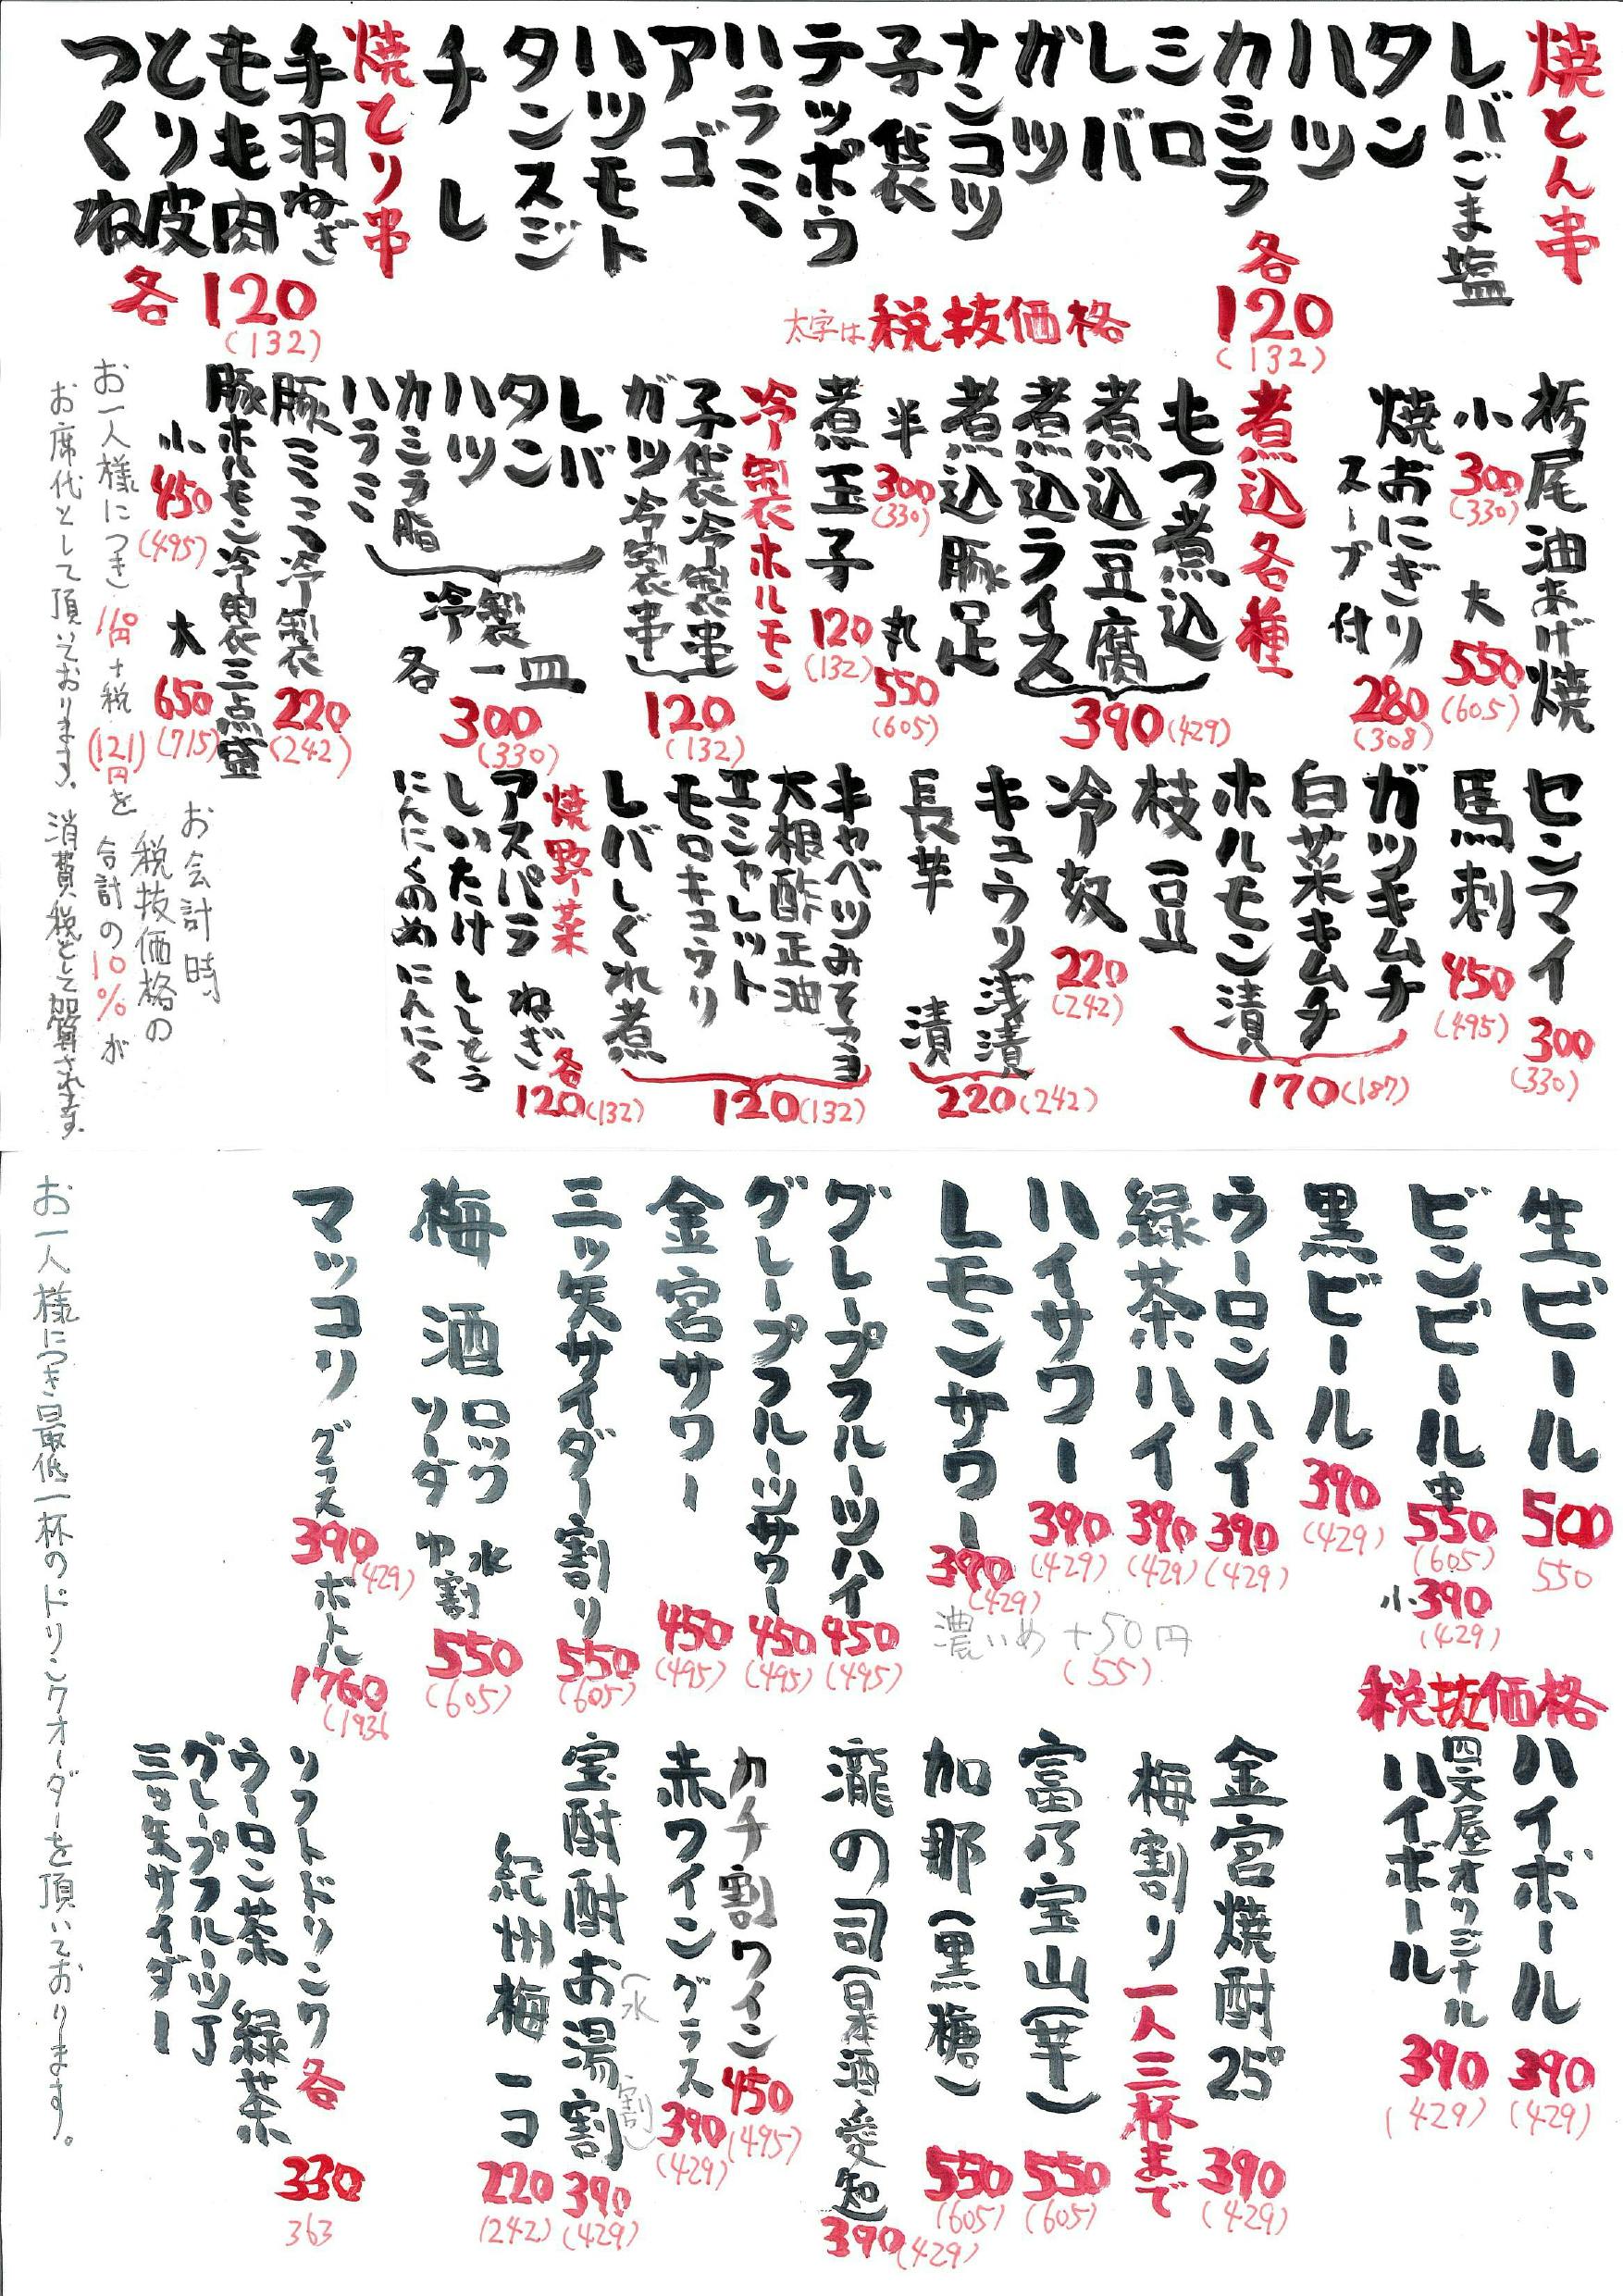 焼とん串
レバごま塩
タン
ハツ
カシラ
各
120
(132)
シロ
レバ
ガツ
ナンコツ
子袋
テッポウ
ハラミ
アゴ
ハツモト
タンスジ
チレ
焼とり串
手羽ねぎ
もも肉
とり皮
つくね
各 120
(132)
太字は税抜価格
栃尾油あげ焼
小 300 (330) 大 550 (605)
焼おにぎり
スープ付
280
(308)
煮込各種
もつ煮込
煮込豆腐
煮込ライス
390 (429)
煮込豚足
半 300 (330) 丸 550 (605)
煮玉子 120 (132)
冷製ホルモン
子袋冷製串
ガツ冷製串
120
(132)
レバ
タン
ハツ
カシラ脂
ハラミ
冷製
各 一皿
300
(330)
豚ミミ冷製 220 (242)
豚ホルモン冷製三点盛
小 450 (495) 大 650 (715)
お一人様につき110円+税(121)円を
お席代として頂いております。
センマイ 300 (330)
馬刺 450 (495)
ガツキムチ
白菜キムチ
ホルモン漬
枝豆
170 (187)
冷奴 220 (242)
キュウリ浅漬
長芋漬
220 (242)
キャベツみそマヨ
大根酢正油
エシャレット
モロキュウリ
レバしぐれ煮
120 (132)
焼野菜
アスパラ ねぎ
しいたけ ししとう
にんにくのめ にんにく
各
120 (132)
お会計時、
税抜価格の
合計の10%が
消費税として加算されます。
生ビール 500 550
ビンビール中 550 (605) 小 390 (429)
黒ビール 390 (429)
ウーロンハイ 390 (429)
緑茶ハイ 390 (429)
ハイサワー 390 (429)
レモンサワー 390 (429)
濃いめ +50円
(55)
グレープフルーツハイ 450 (495)
グレープフルーツサワー 450 (495)
金宮サワー 450 (495)
三ツ矢サイダー割り 550 (605)
梅酒 ロック 水割
ソーダ
550
(605)
マッコリ グラス 390 (429) ボトル 1760 (1936
税抜価格
ハイボール 390 (429)
四文屋オリジナル
ハイボール
390
(429)
金宮焼酎25° 390 (429)
梅割り 一人三杯まで
富乃宝山(芋) 550 (605)
加那(黒糖) 550 (605)
瀧の司(日本酒・愛知 390 (429)
カチ割ワイン 450 (495)
赤ワイングラス 390 (429)
宝酎酎お湯割 390 (429)
(水割)
紀州梅 一コ 220 (242)
ソフトドリンク各 330 363
ウーロン茶 緑茶
グレープフルーツJ
三ツ矢サイダー
お一人様につき最低一杯のドリンクオーダーを頂いております。